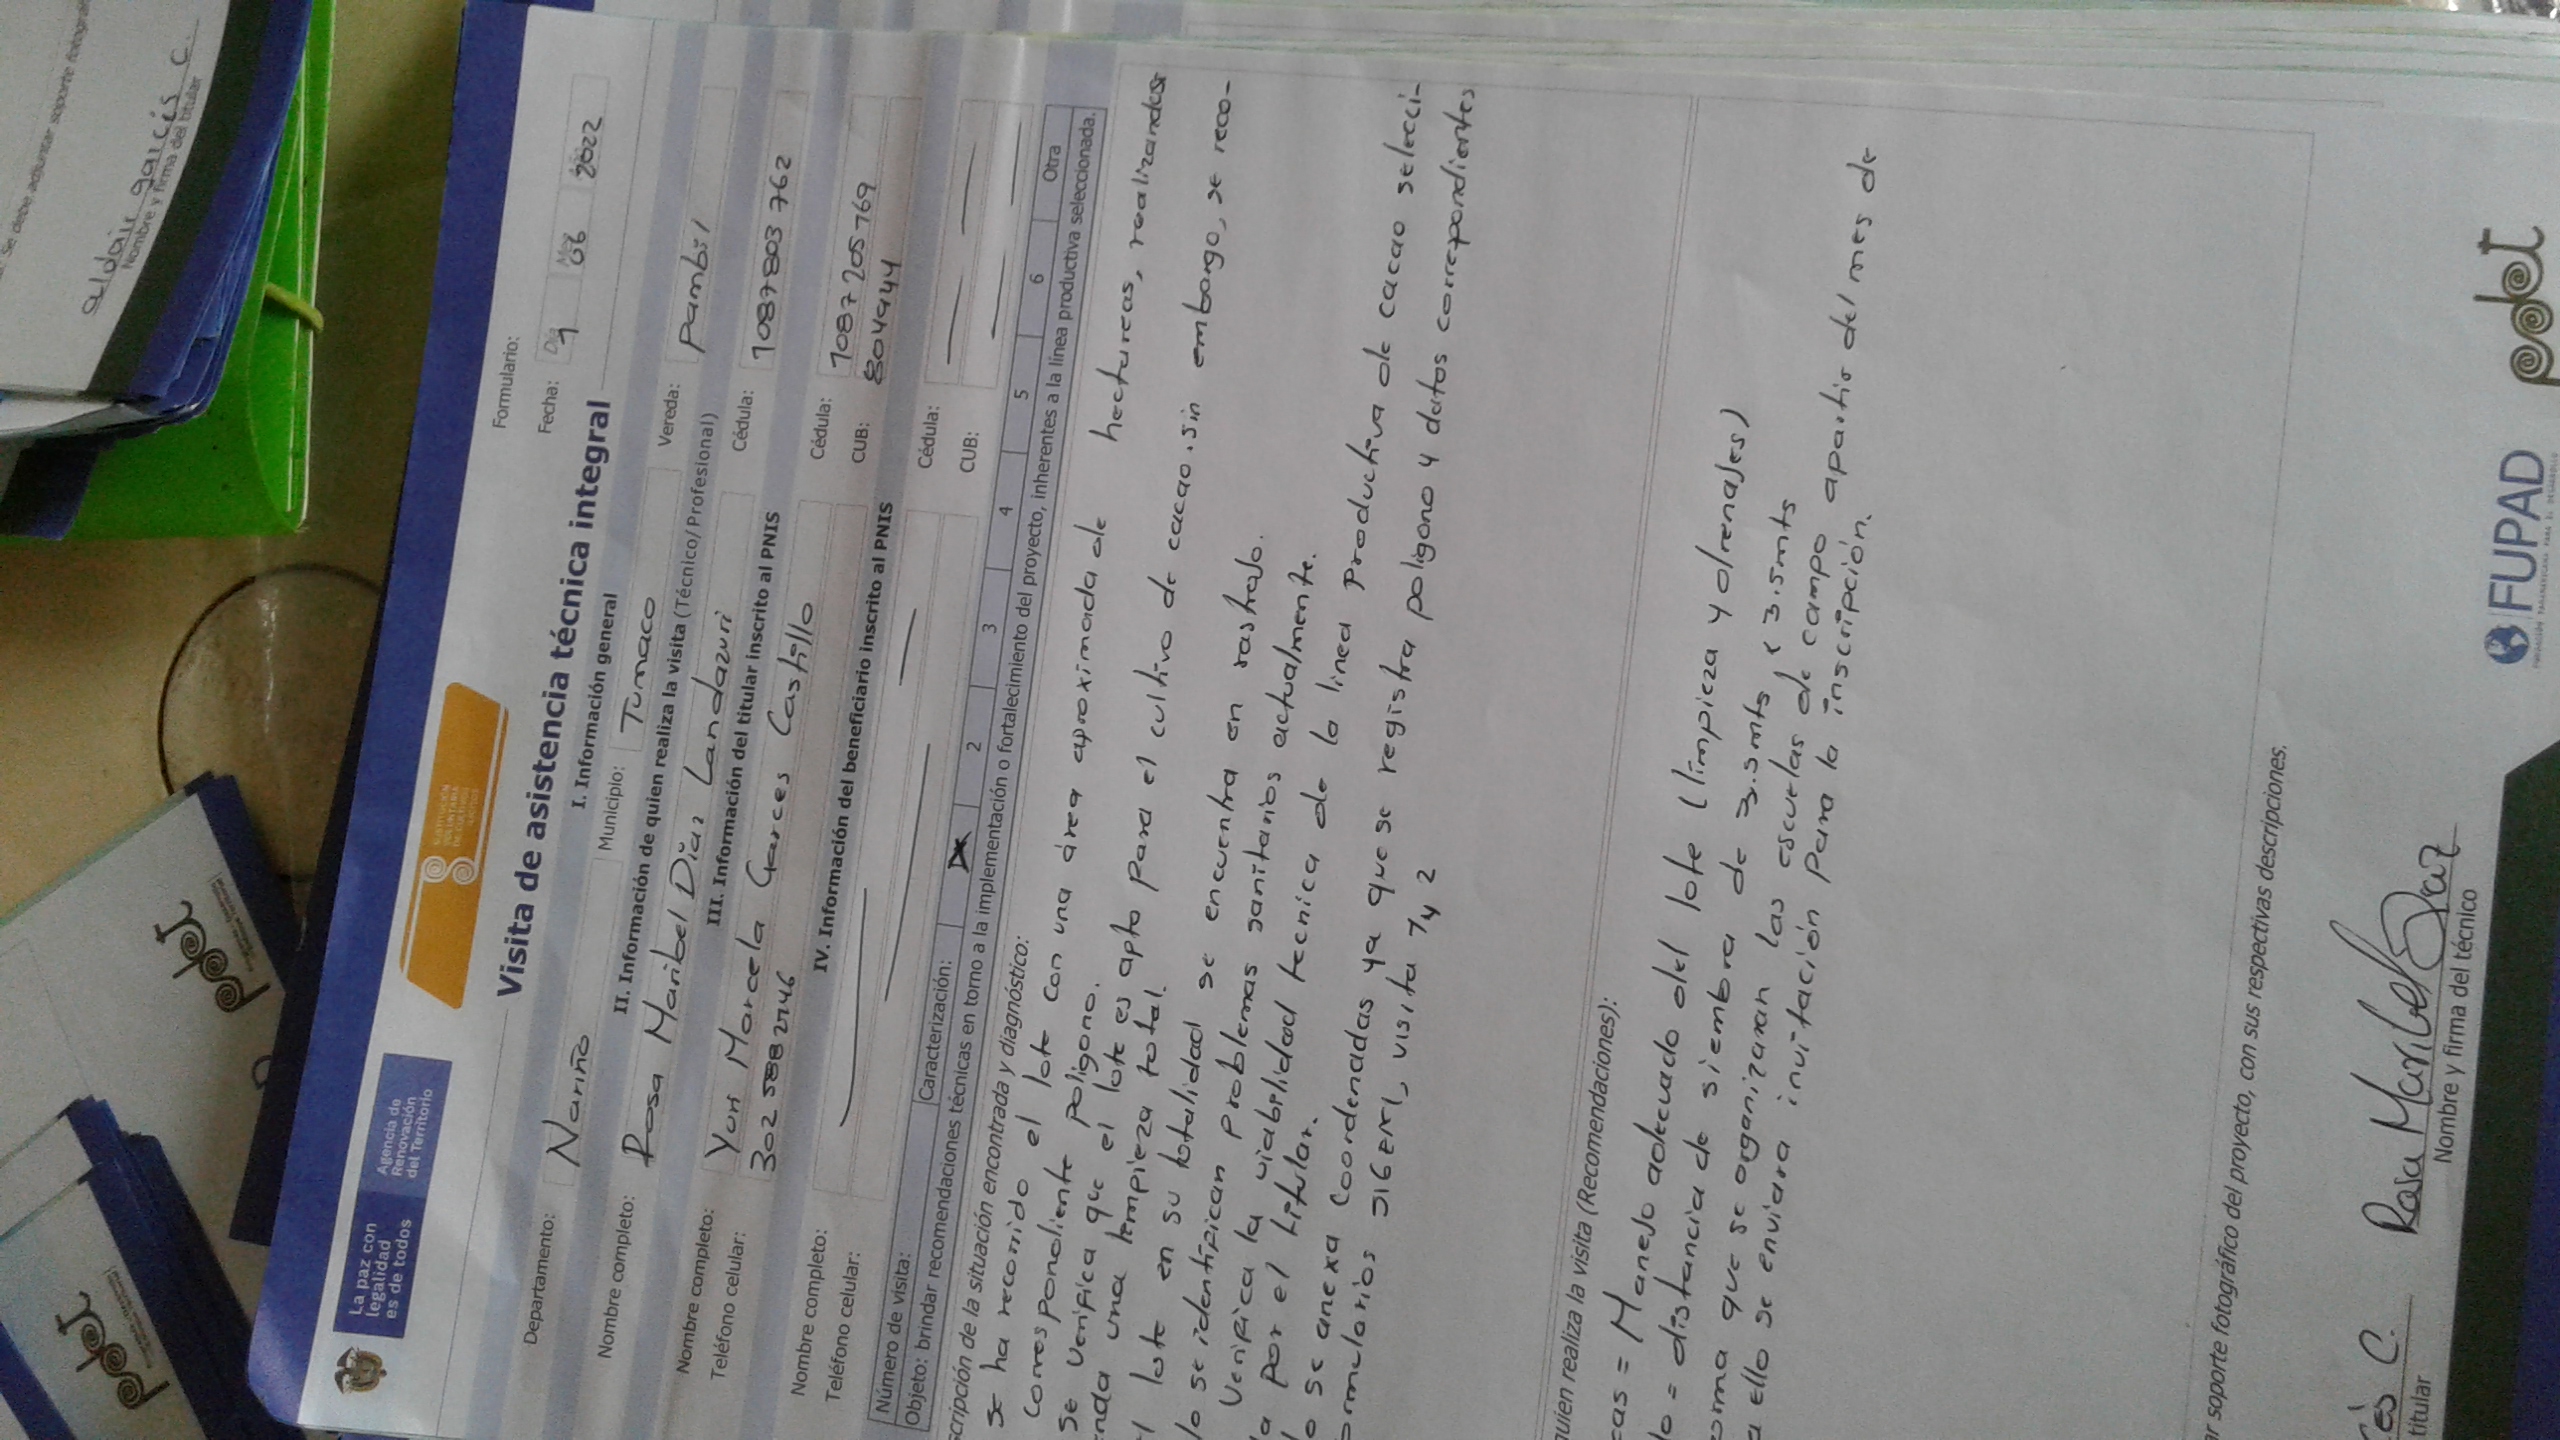 Se debe adjuntar soporte fotográfi
aldair garcés C.
Nombre y firma del titular
pdet
pdet
La paz con
legalidad
es de todos
Agencia de
Renovación
del Territorio
SUSTITUCIÓN
VOLUNTARIA
DE CULTIVOS
ILÍCITOS
Formulario:
Visita de asistencia técnica integral
Fecha: Día 9 Mes 06 Año 2022
I. Información general
Departamento: Nariño Municipio: Tumaco Vereda: Pambil
II. Información de quien realiza la visita (Técnico/Profesional)
Nombre completo: Rosa Maribel Díaz Landazuri Cédula: 1087803762
III. Información del titular inscrito al PNIS
Nombre completo: Yuri Marcela Garces Castillo Cédula: 1087205769
Teléfono celular: 3025882246 CUB: 804944
IV. Información del beneficiario inscrito al PNIS
Nombre completo: Cédula:
Teléfono celular: CUB:
Número de visita: Caracterización: X 2 3 4 5 6 Otra
Objeto: brindar recomendaciones técnicas en torno a la implementación o fortalecimiento del proyecto, inherentes a la línea productiva seleccionada.
scripción de la situación encontrada y diagnóstico:
Se ha recorrido el lote con una área aproximada de hectareas, realizandose
correspondiente poligono.
Se verifica que el lote es apto para el cultivo de cacao. sin embargo, se reco-
enda una limpieza total.
el lote en su totalidad se encuentra en rastrajo.
lo se identifican problemas sanitarios actualmente.
Verifica la viabilidad tecnica de la linea productiva de cacao selecci-
a por el titular.
o se anexa coordenadas ya que se registra poligono y datos correspondientes
ormularios SIGEMI, visita 1 y 2
quien realiza la visita (Recomendaciones):
cas = Manejo adecuado del lote (limpieza y drenajes)
lo = distancia de siembra de 3.5mts x 3.5mts
oma que se organizaran las escuelas de campo apartir del mes de
a ello se enviara invitación para la inscripción.
ar soporte fotográfico del proyecto, con sus respectivas descripciones.
és C.
titular
Rosa Maribel Diaz
Nombre y firma del técnico
FUPAD
pdet